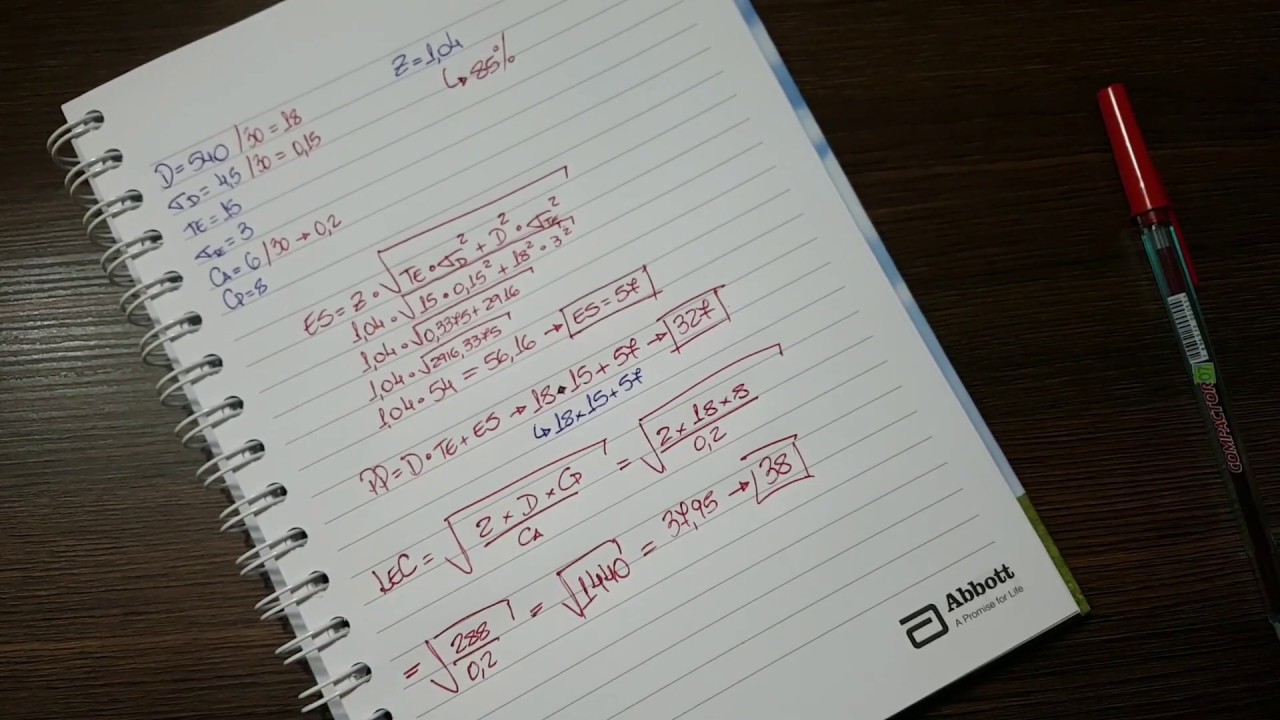 Z=1,04
↳ 85%
D=540/30=18
σD=4,5/30=0,15
TE=15
σTE=3
CA=6/30→0,2
CP=8
ES=Z•√TE•σD²+D²•σTE²
1,04•√15•0,15²+18²•3²
1,04•√0,3375+2916
1,04•√2916,3375
1,04•54=56,16→ES=57
PP=D•TE+ES→18•15+57→327
↳18×15+57
LEC=√2×D×CP/CA=√2×18×8/0,2
=√288/0,2=√1440=37,95→38
Abbott
A Promise for Life
COMPACTOR 07